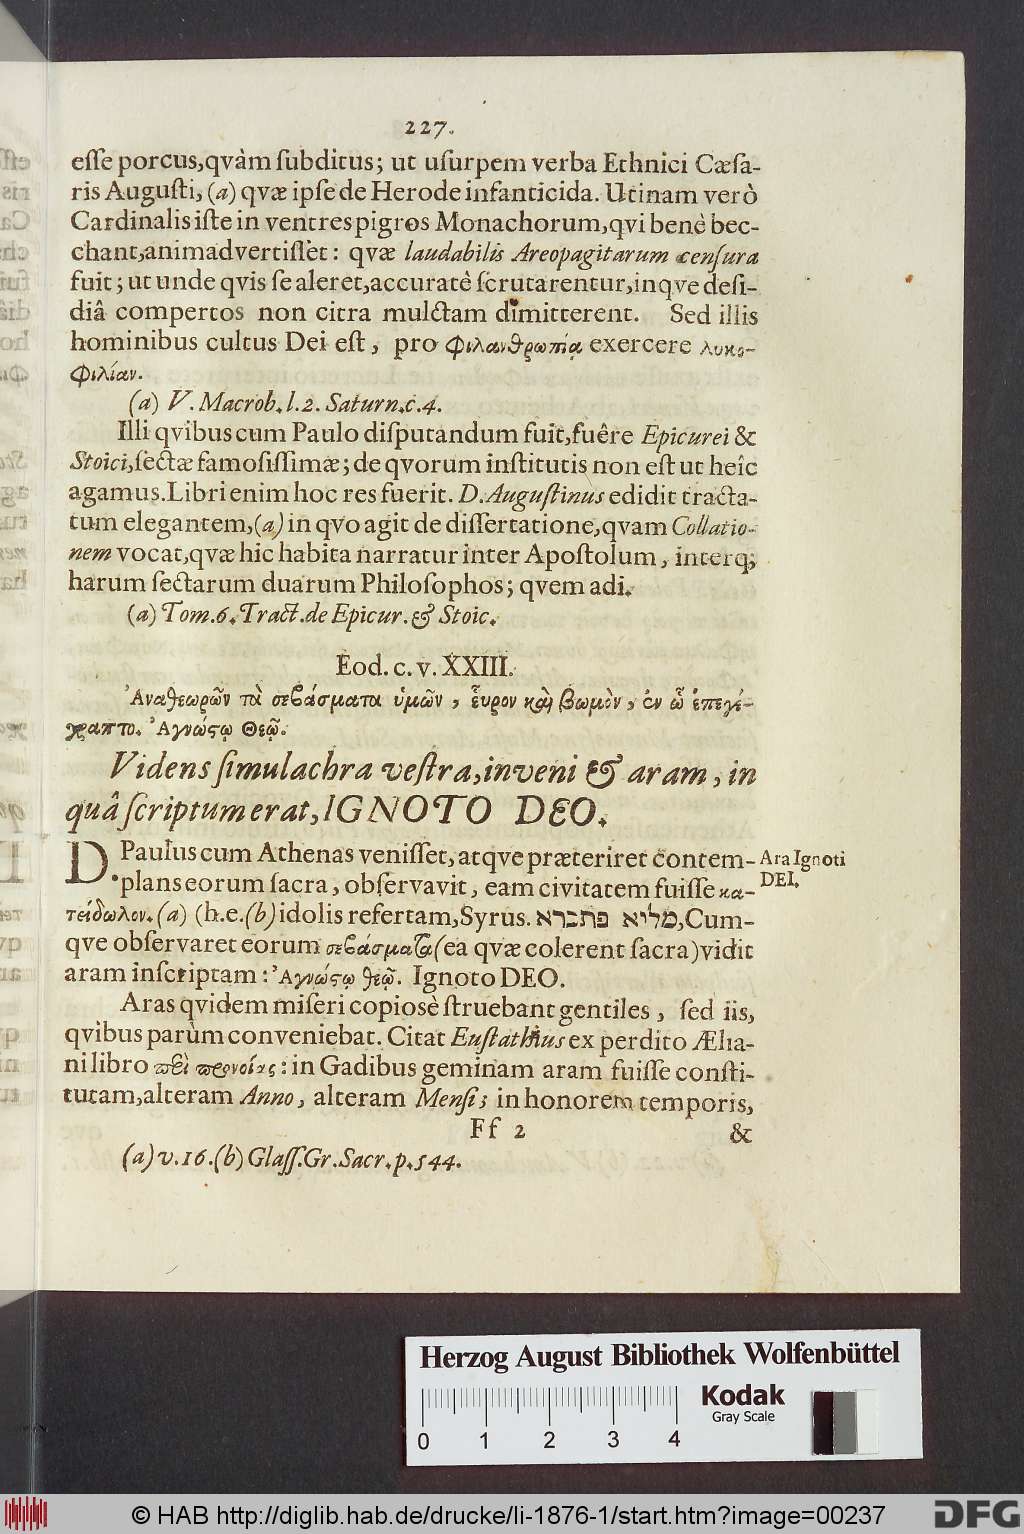 227.
esse porcus, qvàm subditus; ut usurpem verba Ethnici Cæsa-
ris Augusti, (a) qvæ ipse de Herode infanticida. Utinam verò
Cardinalis iste in ventres pigros Monachorum, qvi benè bec-
chant, animadvertisset: qvæ laudabilis Areopagitarum censura
fuit; ut unde qvis se aleret, accuratè scrutarentur, inqve desi-
diâ compertos non citra mulctam dimitterent. Sed illis
hominibus cultus Dei est, pro φιλανθρωπίᾳ exercere λυκο-
φιλίαν.
(a) V. Macrob. l. 2. Saturn. c. 4.
Illi qvibuscum Paulo disputandum fuit, fuêre Epicurei &
Stoici, sectæ famosissimæ; de qvorum institutis non est ut heîc
agamus. Libri enim hoc res fuerit. D. Augustinus edidit tracta-
tum elegantem, (a) in qvo agit de dissertatione, qvam Collatio-
nem vocat, qvæ hic habita narratur inter Apostolum, interq;
harum sectarum duarum Philosophos; qvem adi.
(a) Tom. 6. Tract. de Epicur. & Stoic.
Eod. c. v. XXIII.
Ἀναθεωρῶν τὰ σεβάσματα ὑμῶν, εὗρον καὶ βωμὸν, ἐν ᾧ ἐπεγέ-
γραπτο. Ἀγνώστῳ Θεῷ.
Videns simulachra vestra, inveni & aram, in
quâ scriptum erat, IGNOTO DEO.
D. Paulus cum Athenas venisset, atqve præteriret contem-
plans eorum sacra, observavit, eam civitatem fuisse κα-
τείδωλον. (a) (h.e. (b) idolis refertam, Syrus. מליא פתכרא, Cum-
qve observaret eorum σεβάσματα (ea qvæ colerent sacra) vidit
aram inscriptam: Ἀγνώστῳ θεῷ. Ignoto DEO.
Ara Ignoti
DEI.
Aras qvidem miseri copiosè struebant gentiles, sed iis,
qvibus parùm conveniebat. Citat Eustathius ex perdito Ælia-
ni libro περὶ προνοίας: in Gadibus geminam aram fuisse consti-
tutam, alteram Anno, alteram Mensi; in honorem temporis,
Ff 2
&
(a) v. 16. (b) Glass. Gr. Sacr. p. 544.
Herzog August Bibliothek Wolfenbüttel
Kodak
Gray Scale
0 1 2 3 4
© HAB http://diglib.hab.de/drucke/li-1876-1/start.htm?image=00237
DFG